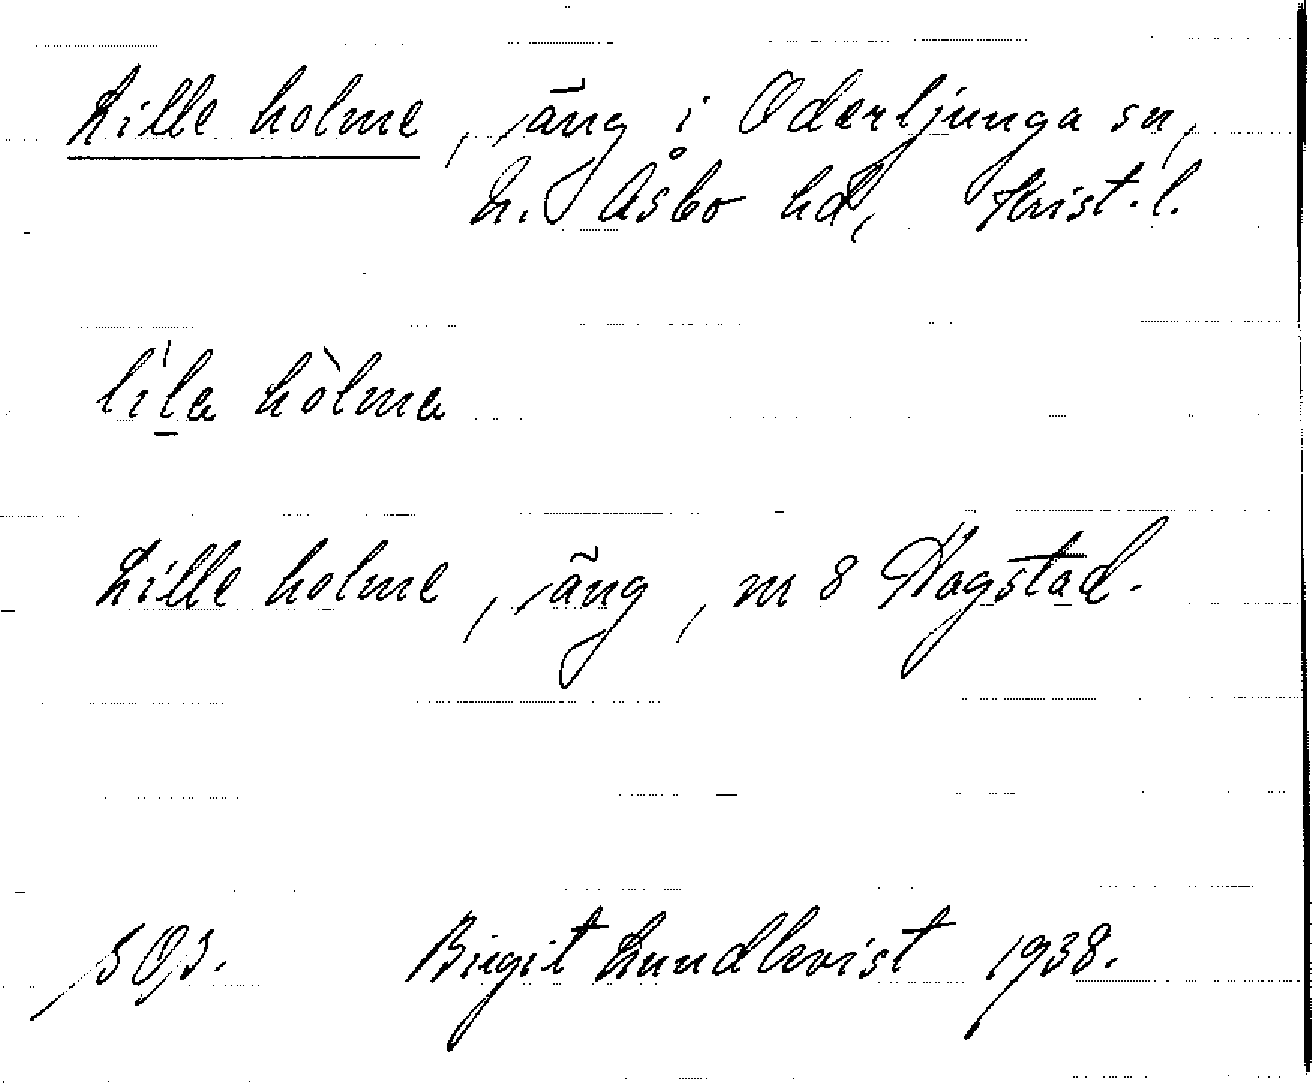 Lille holme, äng i Oderljunga sn,
N. Åsbo hd, Krist. l.
lila hòlma
Lille holme, äng, m 8 Hagstad.
Birgit Lundkvist 1938.